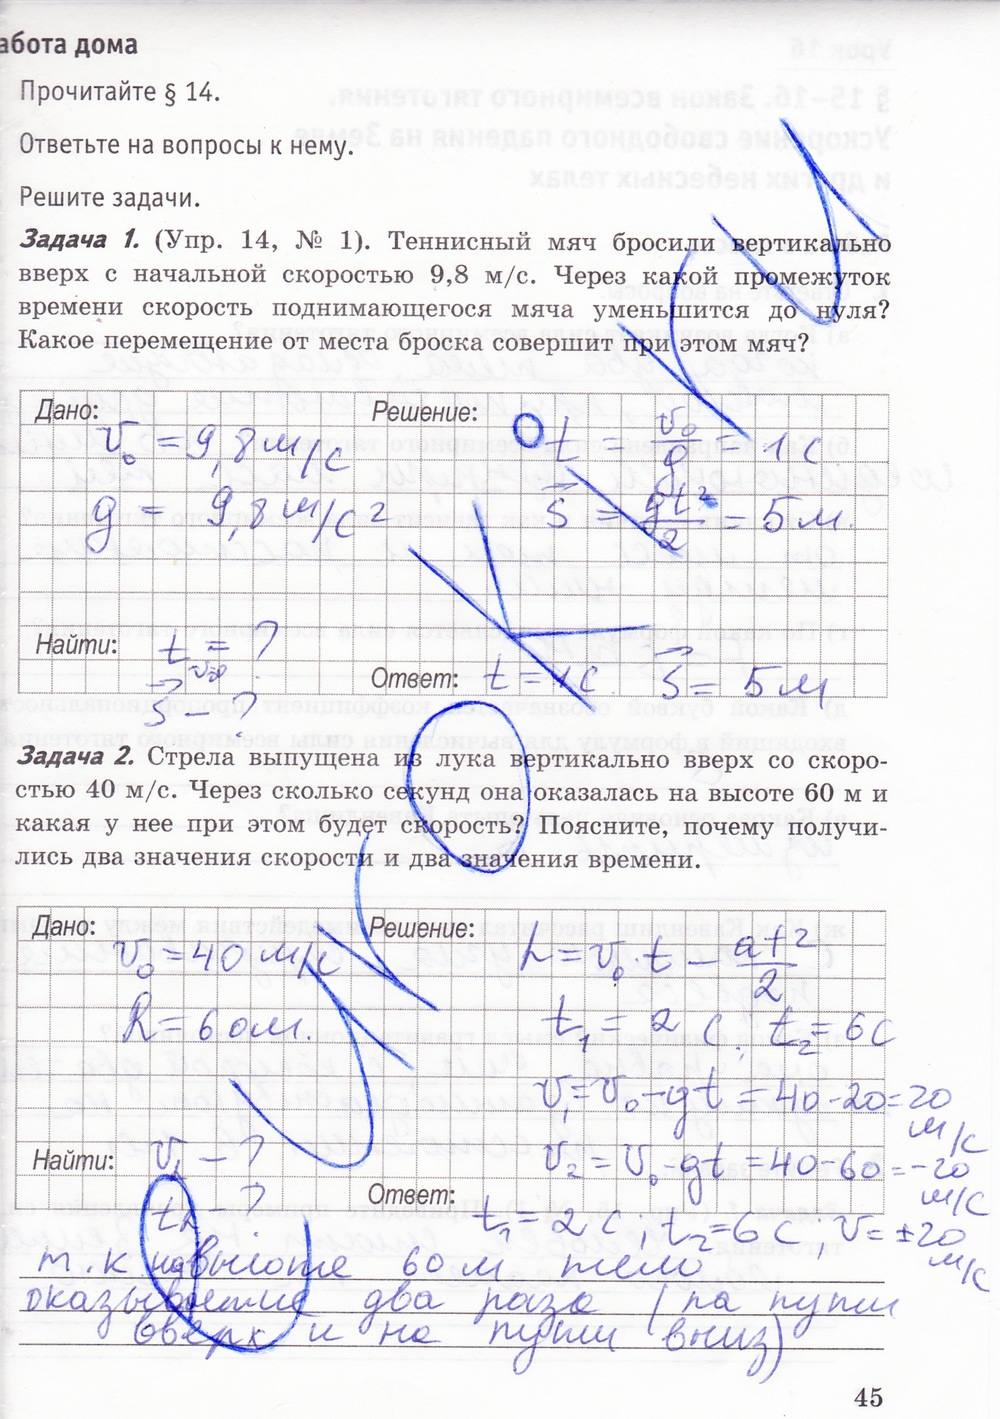 абота дома
Прочитайте § 14.
Ответьте на вопросы к нему.
Решите задачи.
Задача 1. (Упр. 14, № 1). Теннисный мяч бросили вертикально
вверх с начальной скоростью 9,8 м/с. Через какой промежуток
времени скорость поднимающегося мяча уменьшится до нуля?
Какое перемещение от места броска совершит при этом мяч?
Дано: Решение:
v₀ = 9,8 м/с t = v₀/g = 1 с
g = 9,8 м/с² S⃗ = gt²/2 = 5 м.
Найти: t v=0 = ?
Ответ: t = 1 с S⃗ = 5 м
S⃗ – ?
Задача 2. Стрела выпущена из лука вертикально вверх со скоро-
стью 40 м/с. Через сколько секунд она оказалась на высоте 60 м и
какая у нее при этом будет скорость? Поясните, почему получи-
лись два значения скорости и два значения времени.
Дано: Решение:
v₀ = 40 м/с h = v₀·t – at²/2
h = 60 м. t₁ = 2 с, t₂ = 6 с
v₁ = v₀ – gt = 40 - 20 = 20 м/с
Найти: v₁ – ? v₂ = v₀ - gt = 40 - 60 = -20 м/с
th ?
Ответ: t₁ = 2 с t₂ = 6 с, v = ±20 м/с
т.к на высоте 60 м тело
оказывается два раза (на пути
вверх и на пути вниз)
45